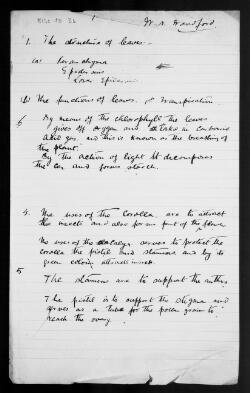 W. A. Handford.
1. The structure of leaves.
(a) Parenchyma
Epidermis
Lower Epidermis
(b) The functions of leaves. Transpiration
By means of the chlorophyll the leaves
gives off oxygen and take in carbonic
acid gas. and this is known as the breathing of
the plant.
By the action of light it decomposes
the and forms starch.
4. The uses of the Corolla are to attract
the insects and also form part of the flower
The uses of the Calyx serves to protect the
corolla the pistil and stamens and by its
green attracts insects.
5
The stamens are to support the anthers
The pistil is to support the stigma and
serves as a tube for the pollen grain to
reach the ovary